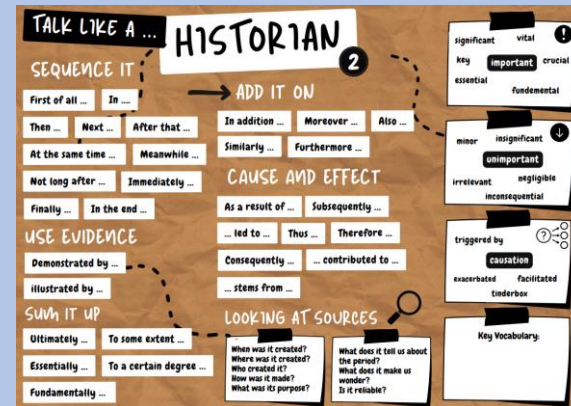 TALK LIKE A ...
HISTORIAN
2
SEQUENCE IT
First of all ... In ....
Then ... Next ... After that ...
At the same time ... Meanwhile ...
Not long after ... Immediately ...
Finally ... In the end ...
USE EVIDENCE
Demonstrated by ...
illustrated by ...
SUM IT UP
Ultimately ... To some extent ...
Essentially ... To a certain degree ...
Fundamentally ...
ADD IT ON
In addition ... Moreover ... Also ...
Similarly ... Furthermore ...
CAUSE AND EFFECT
As a result of ... Subsequently ...
... led to ... Thus ... Therefore ...
Consequently ... ... contributed to ...
... stems from ...
LOOKING AT SOURCES
When was it created?
Where was it created?
Who created it?
How was it made?
What was its purpose?
What does it tell us about
the period?
What does it make us
wonder?
Is it reliable?
!
significant vital
key important crucial
essential
fundemental
minor insignificant
unimportant
irrelevant negligible
inconsequential
triggered by
?
causation
exacerbated facilitated
tinderbox
Key Vocabulary: